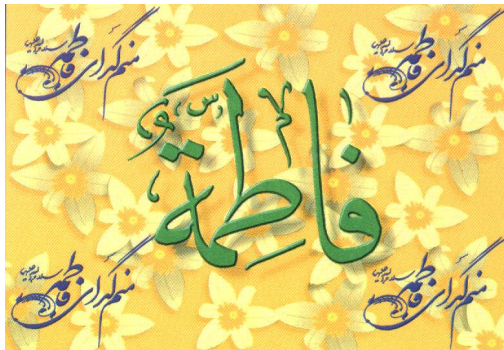 منم گدای فاطمه
منم گدای فاطمه
فاطمة
منم گدای فاطمه
منم گدای فاطمه